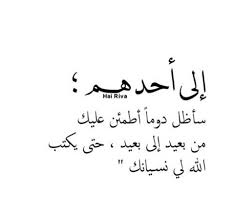 إلى أحدهم ؛
Hai Riva
سأظل دوماً أطمئن عليك
من بعيد إلى بعيد ، حتى يكتب
الله لي نسيانك "